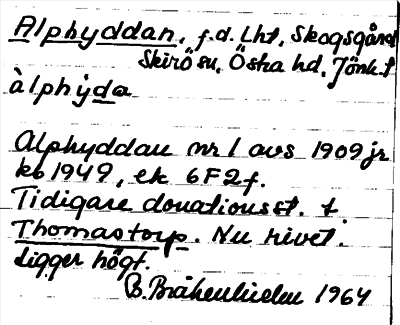 Alphyddan, f.d. Lht, Skogsgård
Skirö sn, Östra hd, Jönk. l
àlphýda
Alphyddan nr 1 avs 1909 jr
kb 1949, ek 6F2f.
Tidigare donationsst. t
Thomastorp. Nu rivet.
Ligger högt.
B. Bråhenhielm 1964